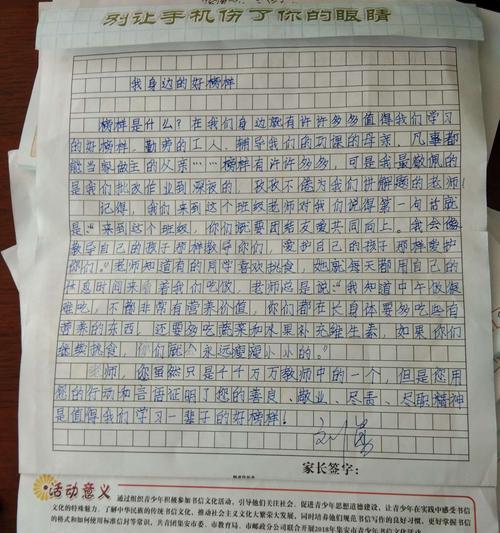 别让手机伤了你的眼睛
我身边的好榜样
榜样是什么？在我们身边就有许许多多值得我们学习
的好榜样，勤劳的工人，辅导我们的功课的母亲，凡事都
能当家做主的父亲……榜样有许许多多，可是我最敬佩的
是我们批改作业到深夜的，孜孜不倦为我们讲解题的老师
记得，我们来到这个班级老师对我们说得第一句话就
是：“来到这个班级，你们就要团结友爱共同向上。我会像
教导自己的孩子那样教导你们，爱护自己的孩子那样爱护
你们。”老师知道有的同学喜欢挑食，她就每天都用自己的
休息时间来着我们吃饭，老师总是说：“我知道中午做
难吃，不都非常有营养价值，你们都在长身体要多吃些有
营养的东西，还要多吃蔬菜和水果补充维生素，如果你们
继续挑食，你们就会永远瘦瘦小小的。”
老师，您虽然只是千千万万教师中的一个，但是您用
您的行动和言语证明了您的善良、敬业、尽责、尽职精神
是值得我们学习一辈子的好榜样！
家长签字：
活动意义
通过组织青少年积极参加书信文化活动，引导他们关注社会，促进青少年思想道德建设，让青少年在实践中感受书信
文化的特殊魅力，了解中华民族的传统书信文化，推动社会主义文化大繁荣大发展，同时培养他们规范书信写作的良好习惯，更好掌握书信
的格式和如何使用标准信封等常识，共青团集安市委、市教育局、市邮政分公司联合开展2018年集安市青少年书信文化活动